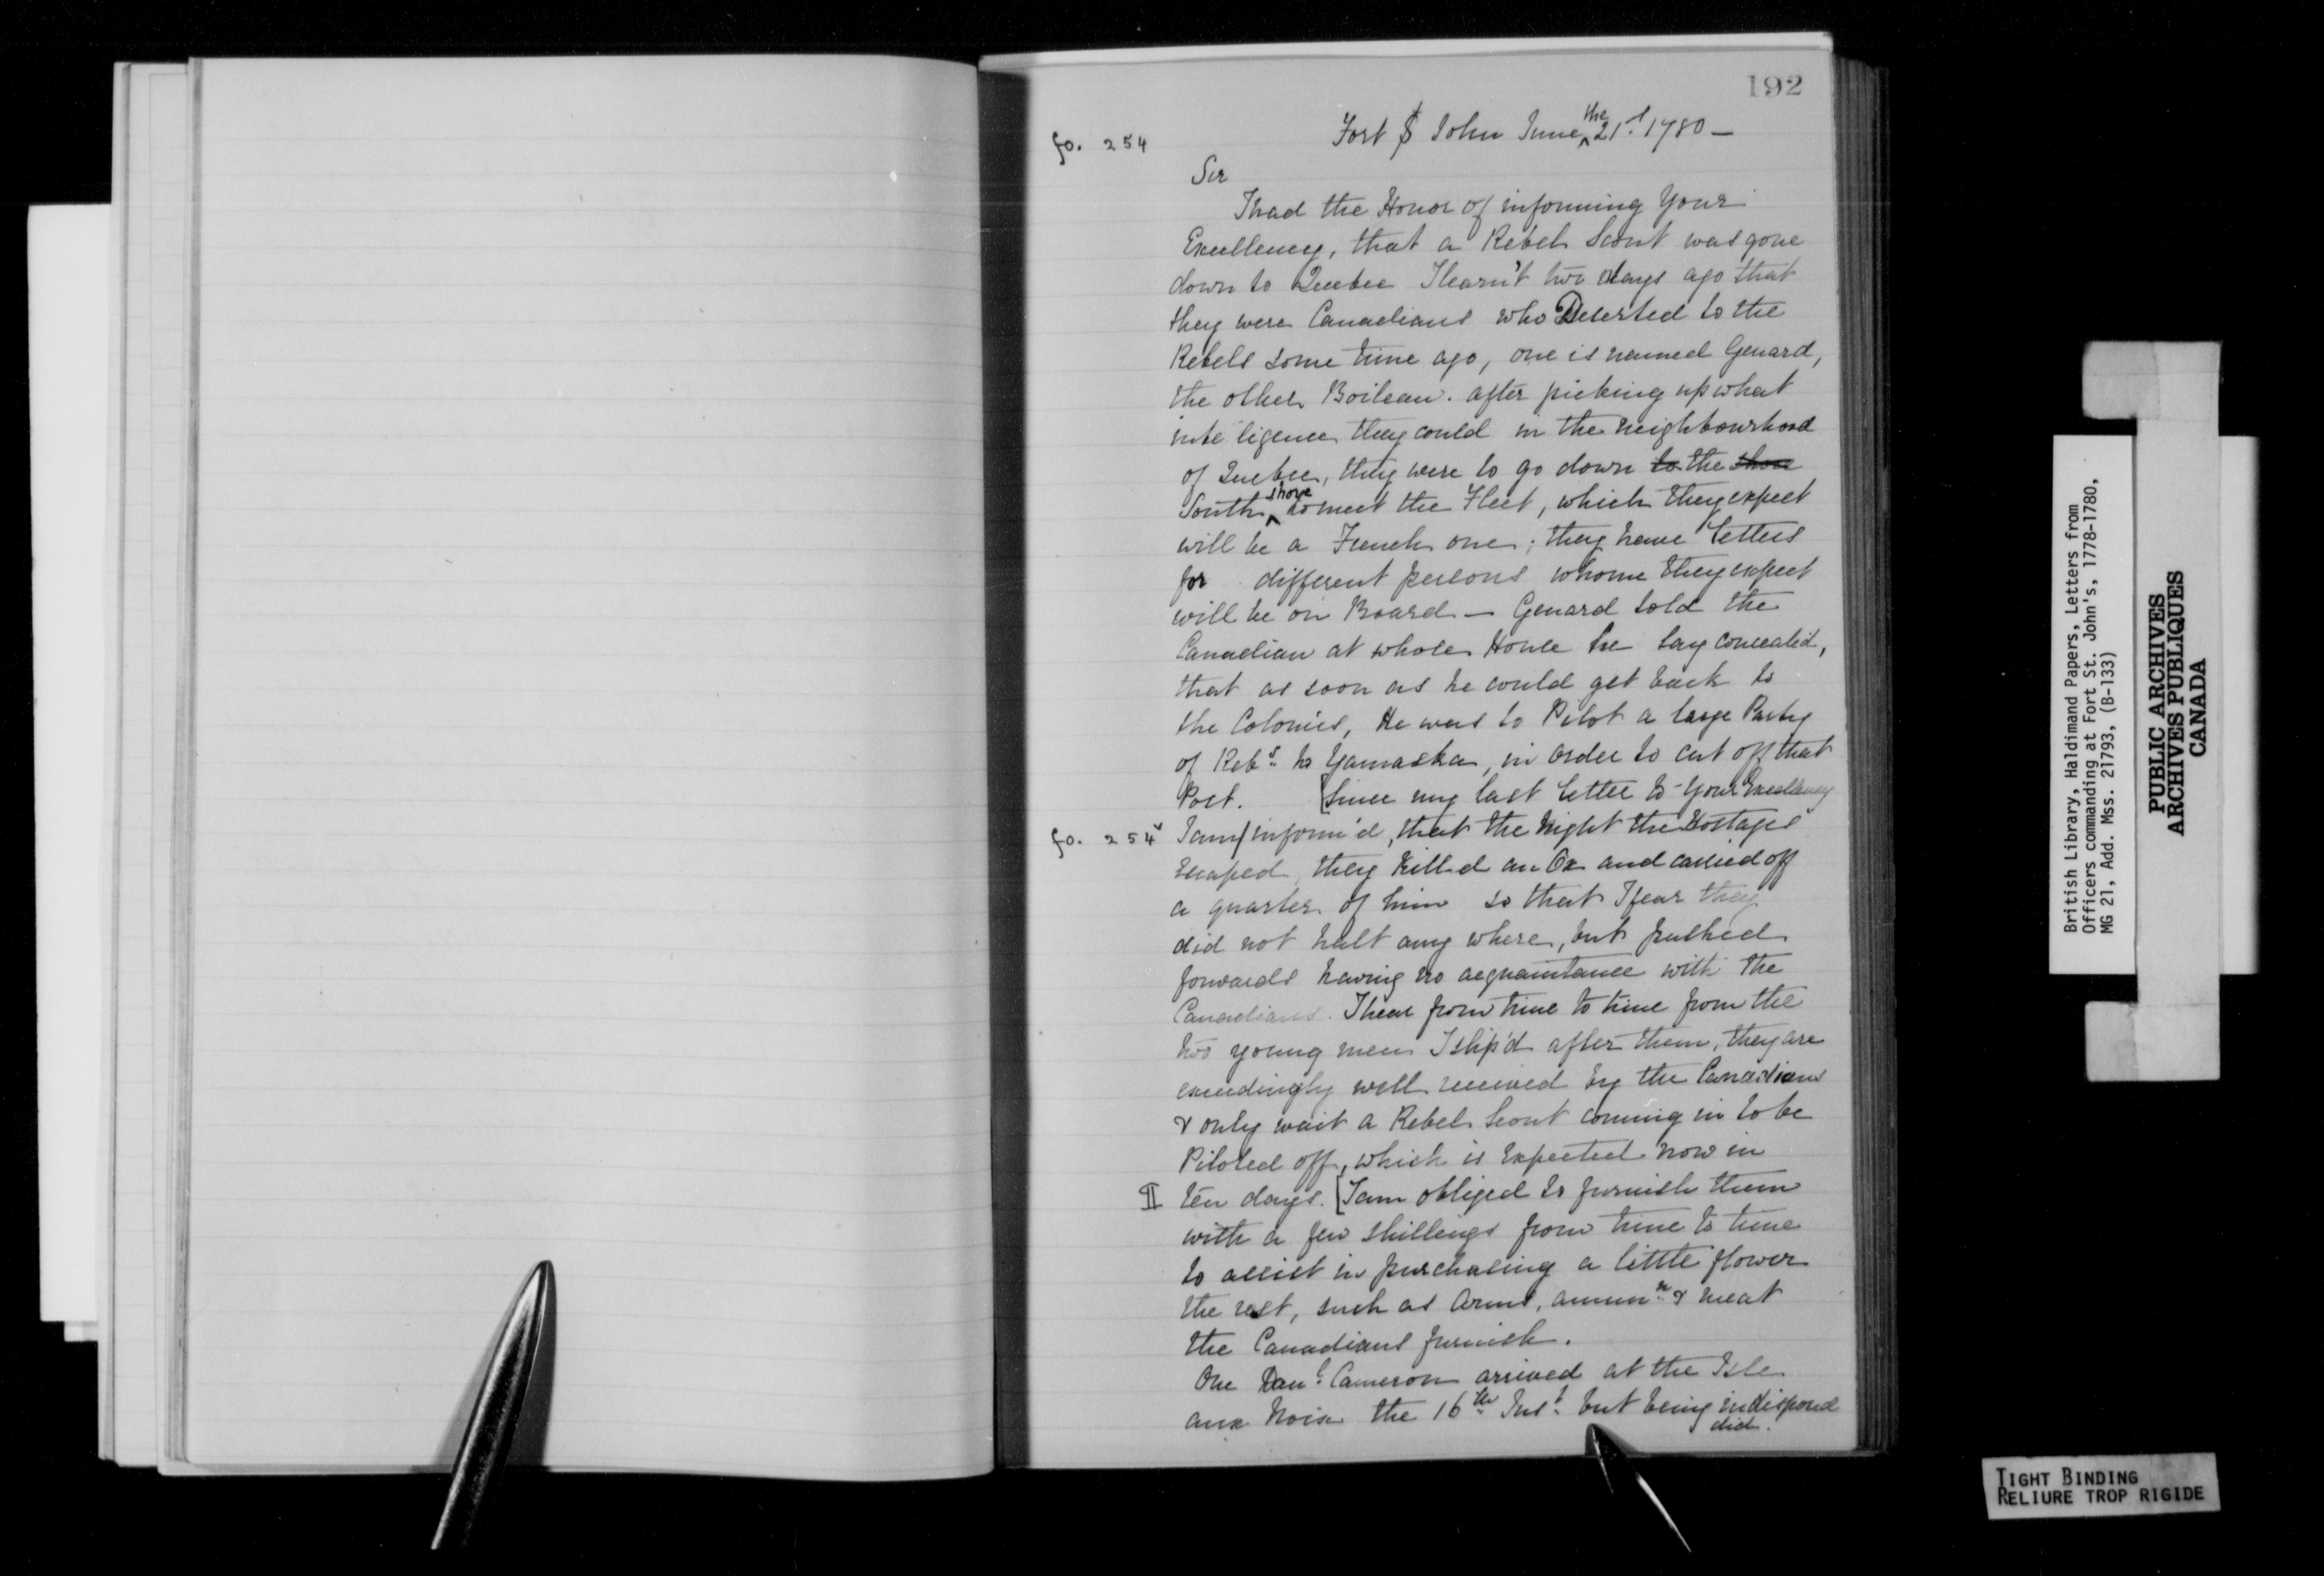 192
fo. 254
Fort St John June the 21st 1780 —
Sir
I had the Honor of informing Your
Excellency, that a Rebel Scout was gone
down to Quebec I learn't two days ago that
they were Canadians who Deserted to the
Rebels some time ago, one is named Genard,
the other Boileau. after picking up what
inteligence they could in the neighbourhood
of Quebec, they were to go down to the shore
South shore to meet the Fleet, which they expect
will be a French one; they have letters
for different persons whome they expect
will be on Board — Genard told the
Canadian at whose House he lay concealed,
that as soon as he could get back to
the Colonies, He was to Pilot a large Party
of Rebs. to Yamaska, in order to cut off that
Post. [Since my last letter to Your Excellency
fo. 254v I am/inform'd, that the Night the Hostages
Escaped, they Killed an Ox and carried off
a quarter of him so that I fear they
did not halt any where, but pushed
forwards having no acquaintance with the
Canadians. I hear from time to time from the
two young men I slip'd after them, they are
exceedingly well received by the Canadians
& only wait a Rebel Scout coming in to be
Piloted off, which is Expected now in
II ten days. [I am obliged to furnish them
with a few shillings from time to time
to assist in purchasing a little flower
the rest, such as Arms, ammn. & meat
the Canadians furnish.
One Danl. Cameron arrived at the Isle
aux Noix the 16th Inst. but being indisposed
did.
British Library, Haldimand Papers, Letters from
Officers commanding at Fort St. John's, 1778-1780,
MG 21, Add. Mss. 21793, (B-133)
PUBLIC ARCHIVES
ARCHIVES PUBLIQUES
CANADA
TIGHT BINDING
RELIURE TROP RIGIDE